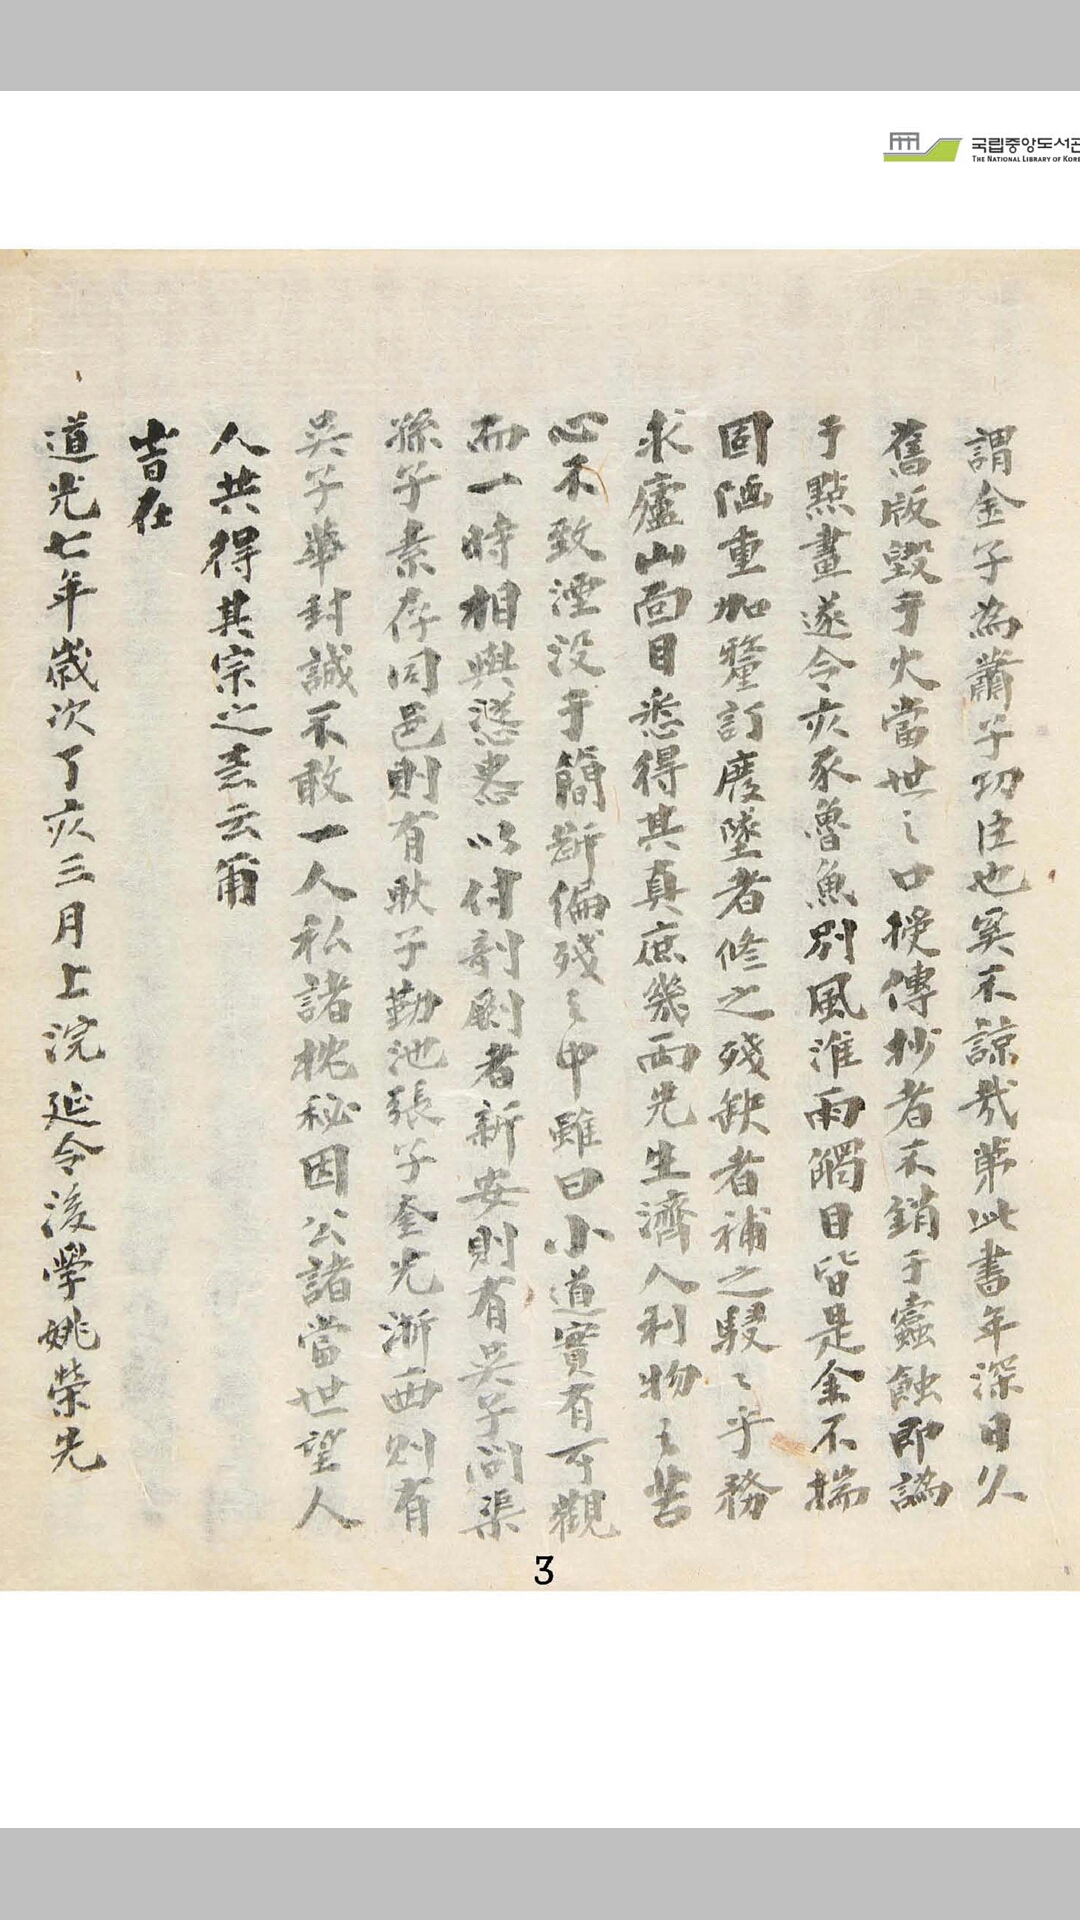 국립중앙도서관
THE NATIONAL LIBRARY OF KORE
謂金子為蕭子功臣也奚不諒哉第此書年深日久
舊版毀于火當世之口授傳抄者不銷于蠹蝕即譌
于點畫遂令亥豕魯魚別風淮雨觸目皆是余不揣
固陋重加釐訂廢墜者修之殘缺者補之駸〻乎務
求廬山面目悉得其真庶幾兩先生濟人利物之苦
心不致湮没于簡斷徧殘之中雖曰小道實有可觀
而一時相與慫恿以付剞劂者新安則有吳子問渠
孫子素存同邑則有耿子勤池張子奎光浙西則有
吳子華封誠不敢一人私諸枕秘因公諸當世望人
人共得其宗之意云爾
旹在
道光七年歲次丁亥三月上浣延令後學姚榮先
3